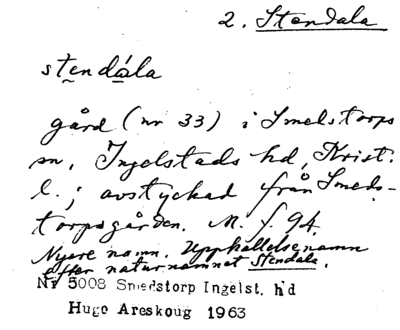 2. Stendala
stendála
gård (nr 33) i Smelstorps
sn, Ingelstads hd, Krist.
l.; avstyckad från Smeds-
torpsgården. M. f. 94.
Nyare namn. Uppkallelsenamn
efter naturnamnet Stendala.
Nr 5008 Smedstorp Ingelst. hd
Hugo Areskoug 1963